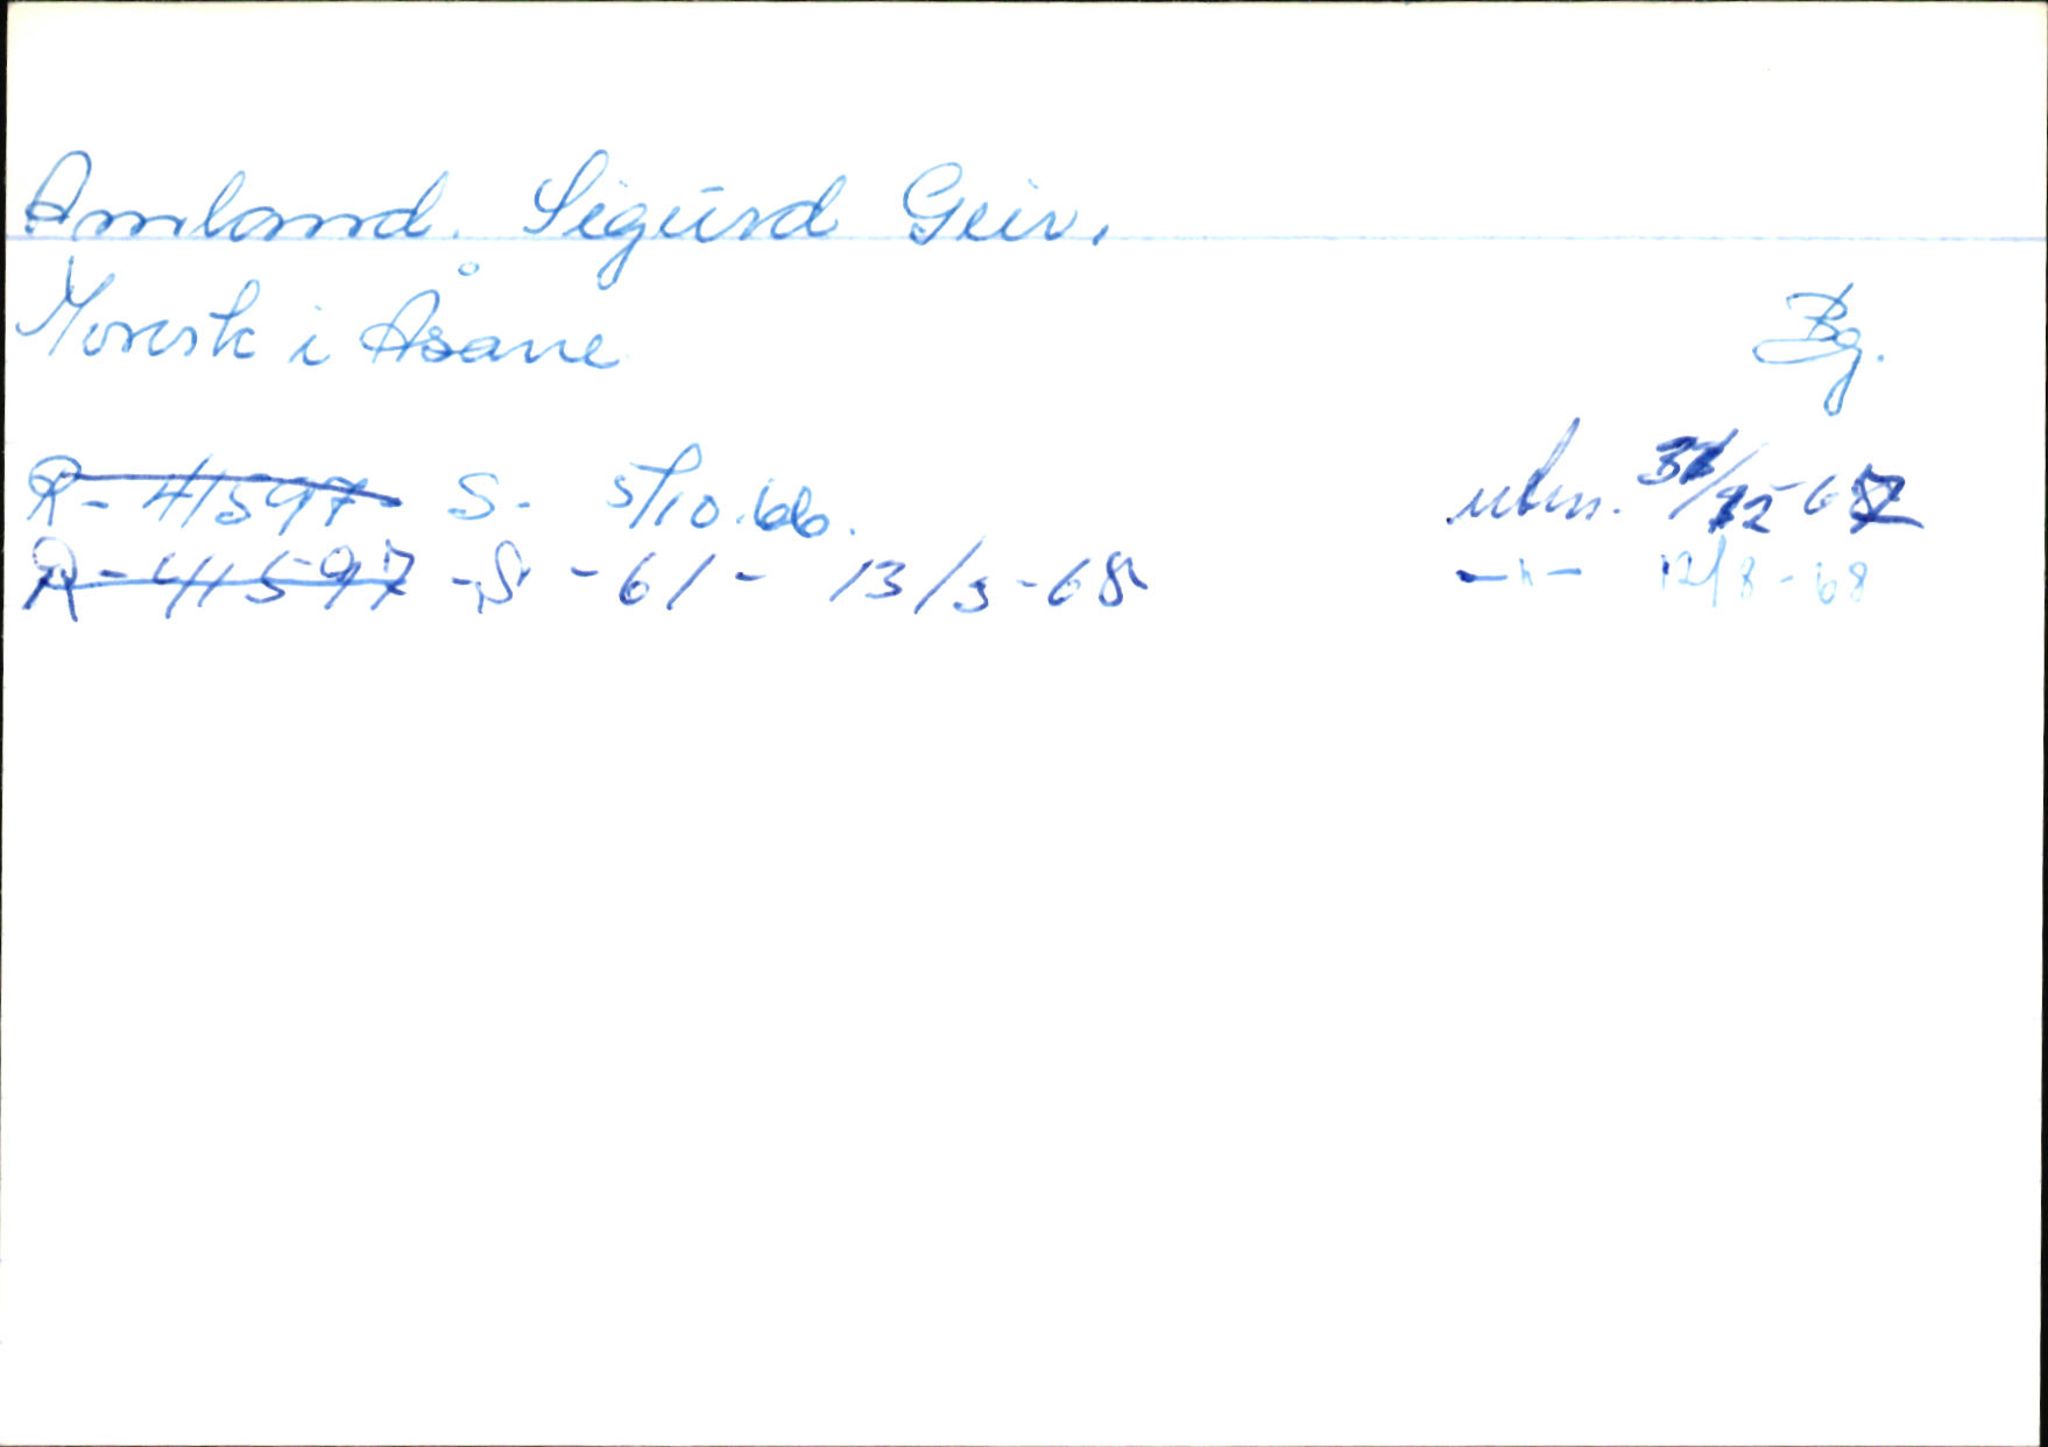 Amland. Sigurd Geir.
Morvik i Åsane
Bg.
R- 41597 S. 5/10.66.
utm. 31/12-67
R-41597 -S -61- 13/3-68
-"- 12/8-68